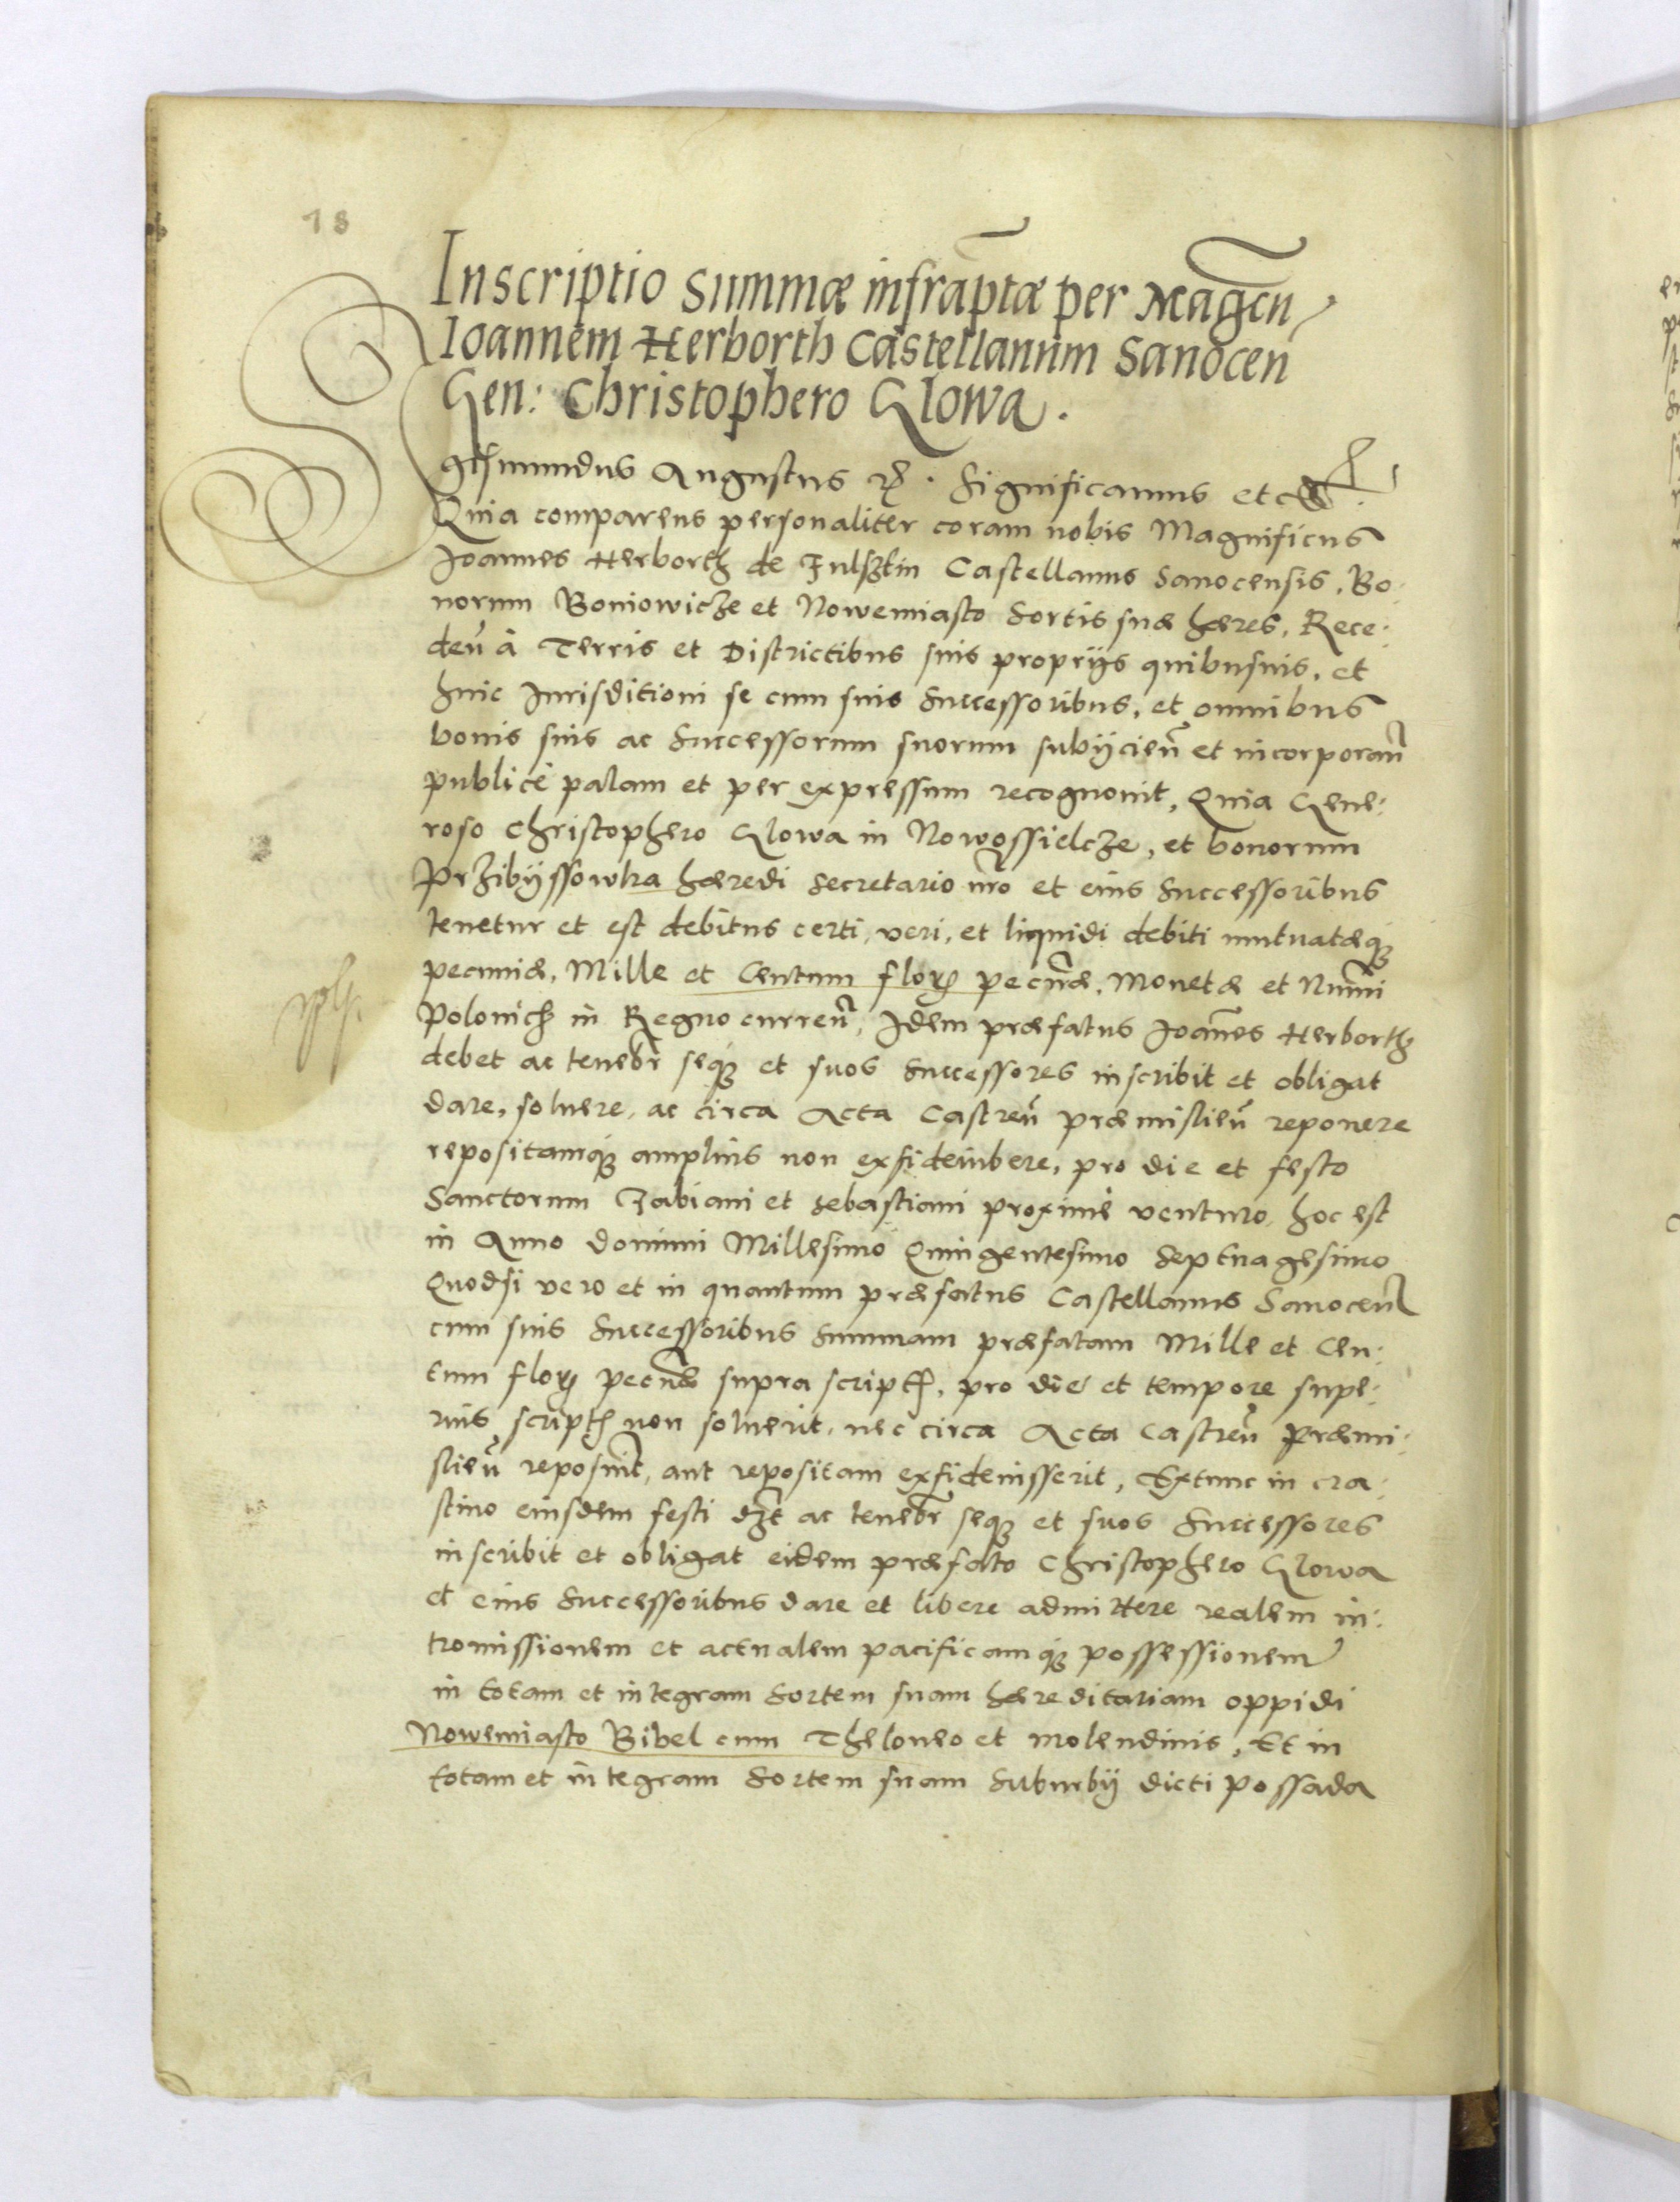 18
Inscriptio Summæ infrap̃tæ per Mag̃cũ
Ioannem Herborth Castellanum Sanoceñ
Gen: Christophero Glowa.
Sigismundus Augustus Rx. Significamus etc
Quia comparens personaliter coram nobis Magnificus
Joannes Herborth de Fulsztin Castellanus Sanocensis, Bo:
norum Boniowicze et Nowemiasto Sortis suæ hæres, Rece:
deñ à Terris et Districtibus suis proprijs quibusuis, et
huic Jurisditioni se cum suis Successoribus, et omnibus
bonis suis ac Successorum suorum subijcieñ et incorporañ
publicè palam et per expressum recognouit, Quia Gene:
roso Christophero Glowa in Nowossielcze, et bonorum
Przibÿssowka hæredi Secretario nr̃o et eius Successoribus
tenetur et est debitus certi, veri, et liquidi debiti mutuatæq3
pecuniæ, Mille et Centum floꝝ pecũiæ, Monetæ et Num̃i
Polonich in Regno curreñ, Idem præfatus Joañes Herborth
debet ac tenebr̃ seq3 et suos Successores inscribit et obligat
dare, soluere, ac circa Acta Castreñ Præmislieñ reponere
repositamq3 amplius non exfideiubere, pro die et festo
Sanctorum Fabiani et Sebastiani proximè venturo, hoc est
in Anno domini Millesimo Quingentesimo Septuagesimo
Quodsi vero et in quantum præfatus Castellanus Sanoceñ
cum suis Successoribus Summam præfatam Mille et Cen:
tum floꝝ pecũiæ supra script̃, pro die et tempore supe:
rius script̃ non soluerit, nec circa Acta Castreñ Præmi:
slieñ reposuĩt, aut repositam exfideiusserit, Extunc in cra:
stino eiusdem festi dzt ac tenebr̃ seq3 et suos Successores
inscribit et obligat eidem præfato Christophero Glowa
et eius Successoribus dare et libere admittere realem in:
tromissionem et actualem pacificamq3 possessionem
in totam et integram Sortem suam hæreditariam oppidi
Nowemiasto Bibel cum Theloneo et molendinis, Et in
totam et integram Sortem suam Suburbij dicti Possada